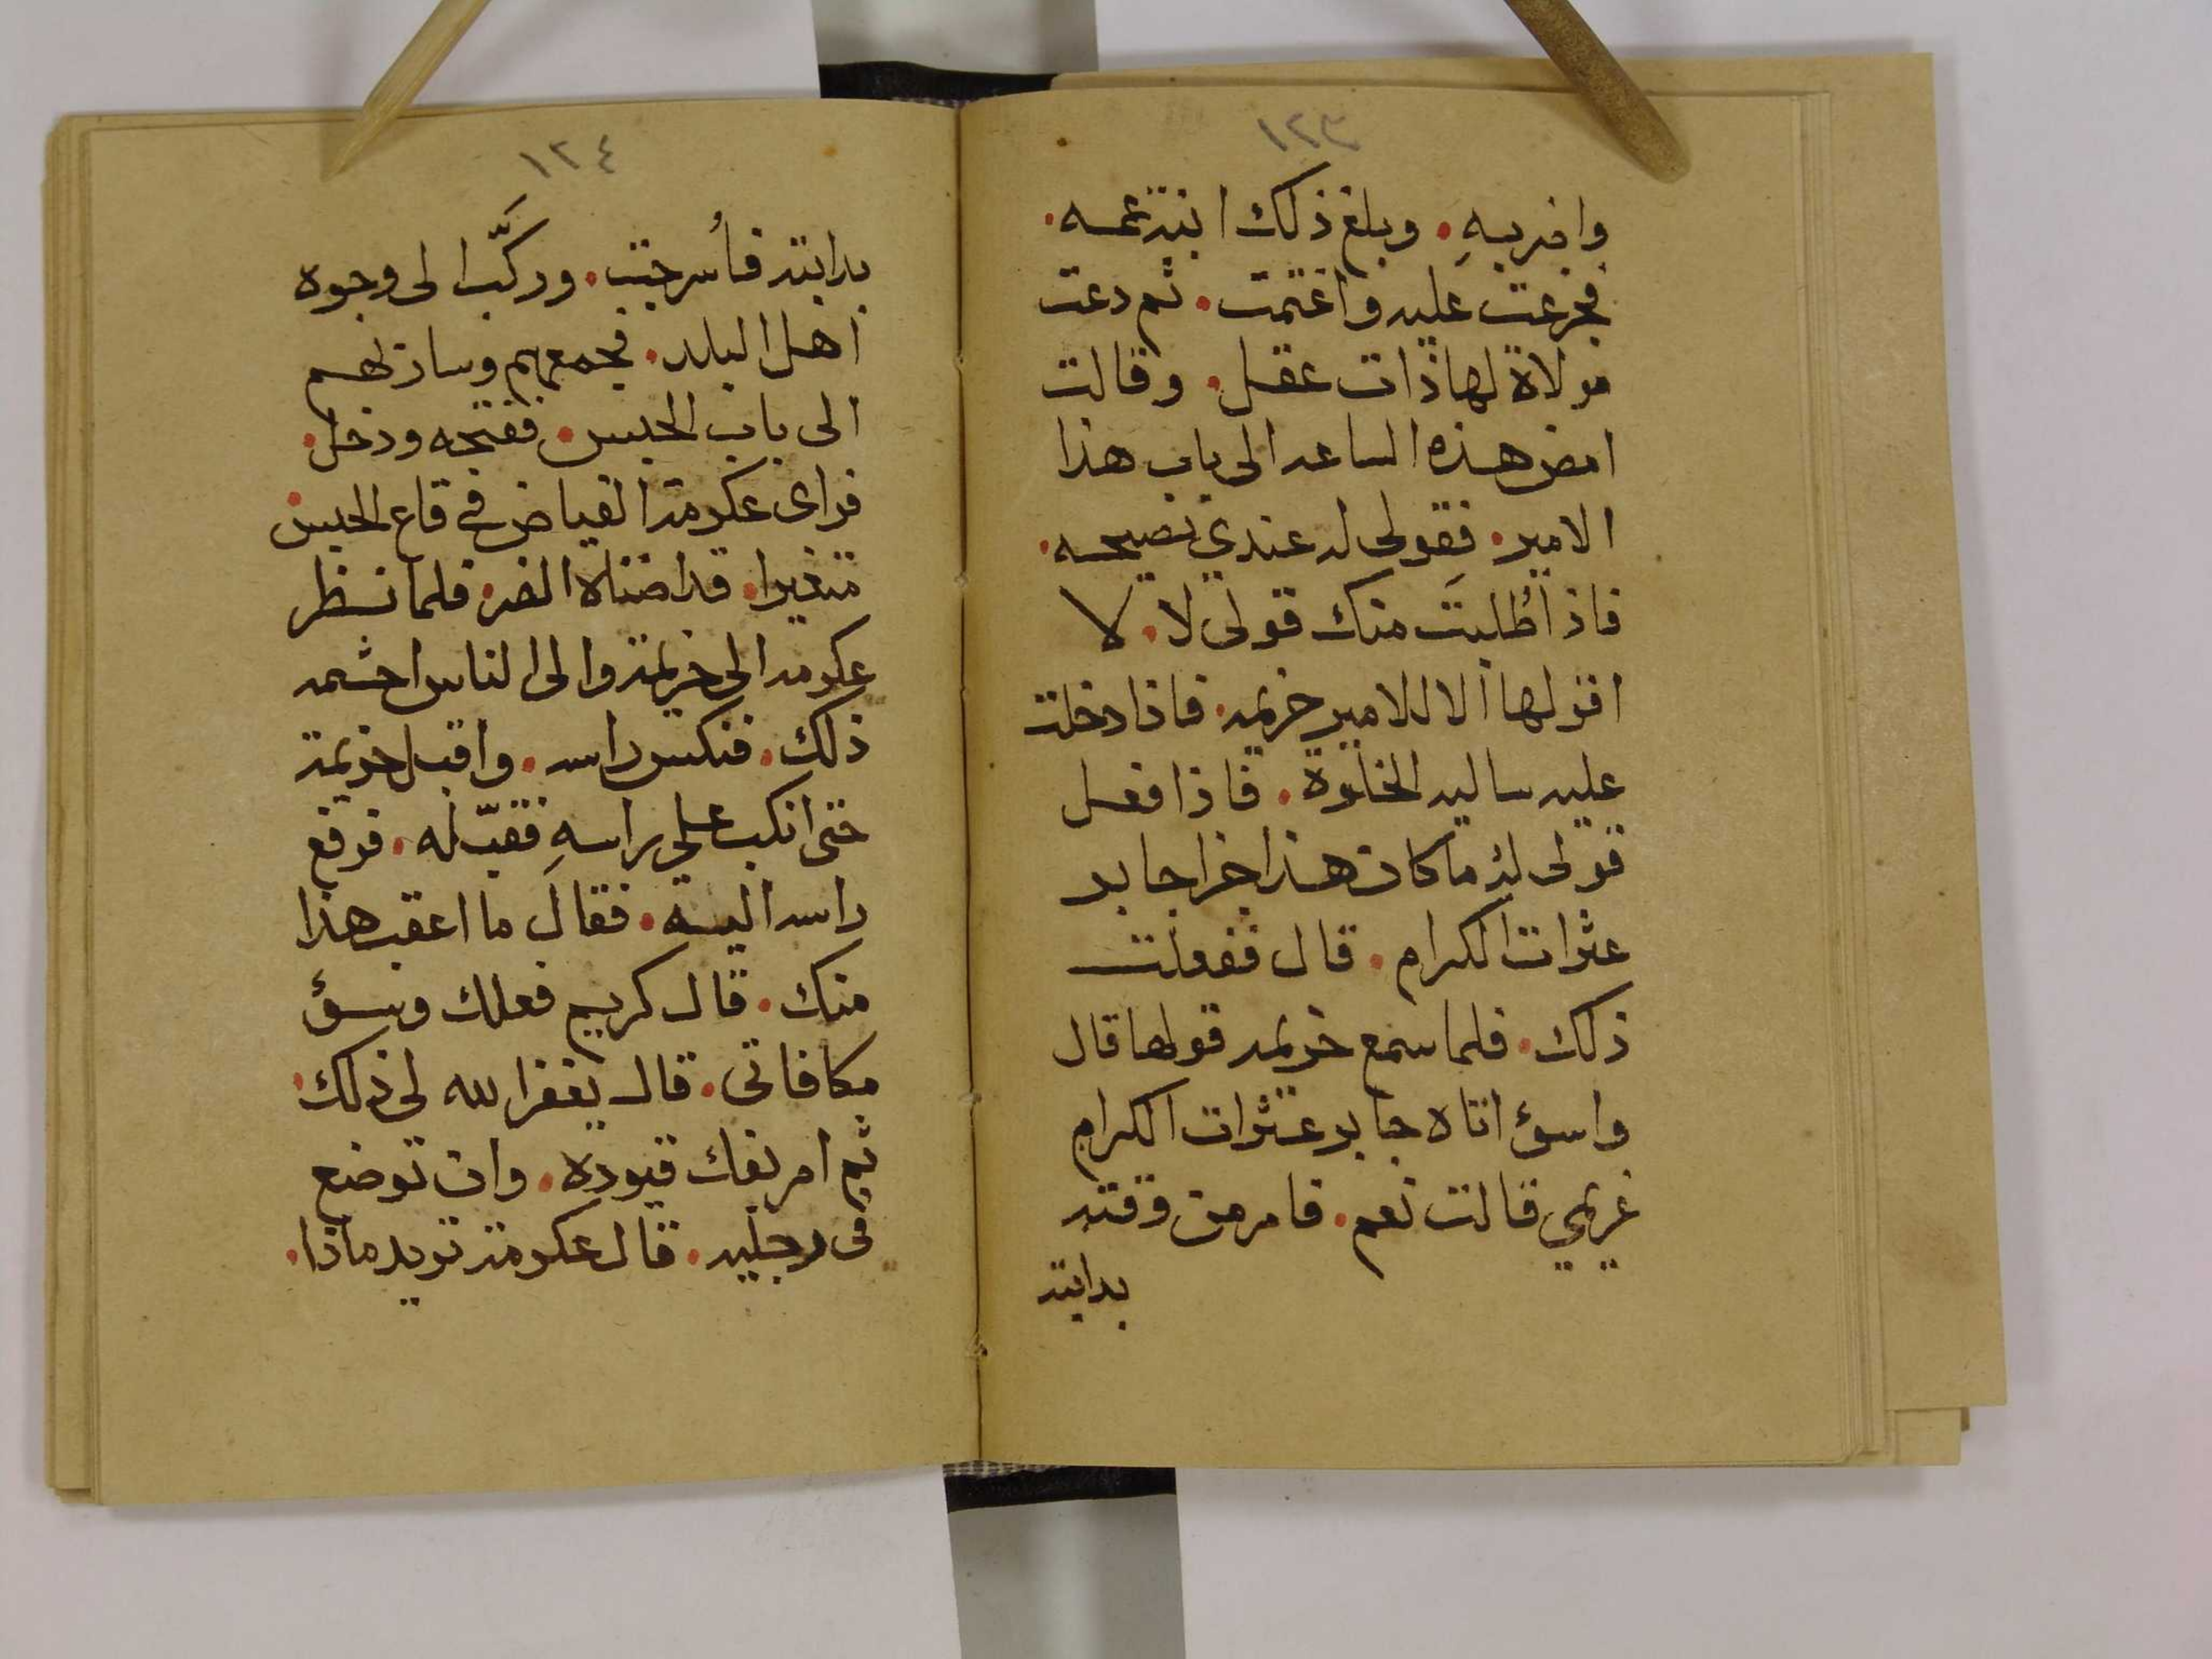 ١٢٣
واضر بهِ. وبلغ ذلك ابنة عمه.
فجزعت عليه واغتمت. ثم دعت
مولاة لها ذات عقل. وقالت
امض هذه الساعه الى باب هذا
الامير. فقولي له عندي نصيحه.
فاذا طُلبتَ منك قولى لا. لا
اقولها الا للامير خزيمه. فاذا دخلت
عليه ساليه الخلوة. فاذا فعل
قولى له ما كان هذا جزا جابر
عثرات الكرام. قال ففعلت
ذلك. فلما سمع خزيمه قولها قال
واسوء اتاه جابر عثرات الكرام
غريمي قالت نعم. فامر من وقته
بدابته
١٢٤
بدابته فأسرجت. وركَّب الى وجوه
اهل البلد. فجمعهم وسار بهم
الى باب الحبس. ففتحه ودخل.
فراى عكرمة الفياض في قاع الحبس.
متغيرا. قد اضناه الضر. فلما نظر
عكرمه الى خزيمة والى الناس احشمه
ذلك. فنكس راسه. واقبل خزيمة
حتى انكب على راسهِ فقبّله. فرفع
راسه اليه. فقال ما اعقب هذا
منك. قال كريم فعلك وسؤ
مكافاتى. قال يغفر الله لى ذلك.
ثم امر بفك قيوده. وان توضع
فى رجليه. قال عكرمة تريد ماذا.